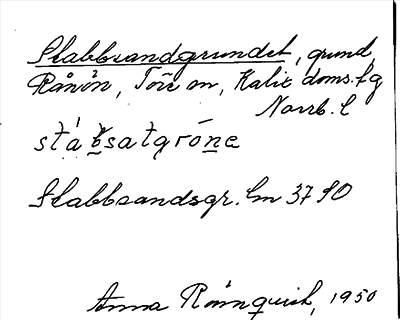 Stabbsandgrundet, grund,
Rånön, Töre sn, Kalix doms.fg
Norrb. l
stábsatgrōne
Stabbsandsgr. Em 37 SO
Anna Rönnquist, 1950